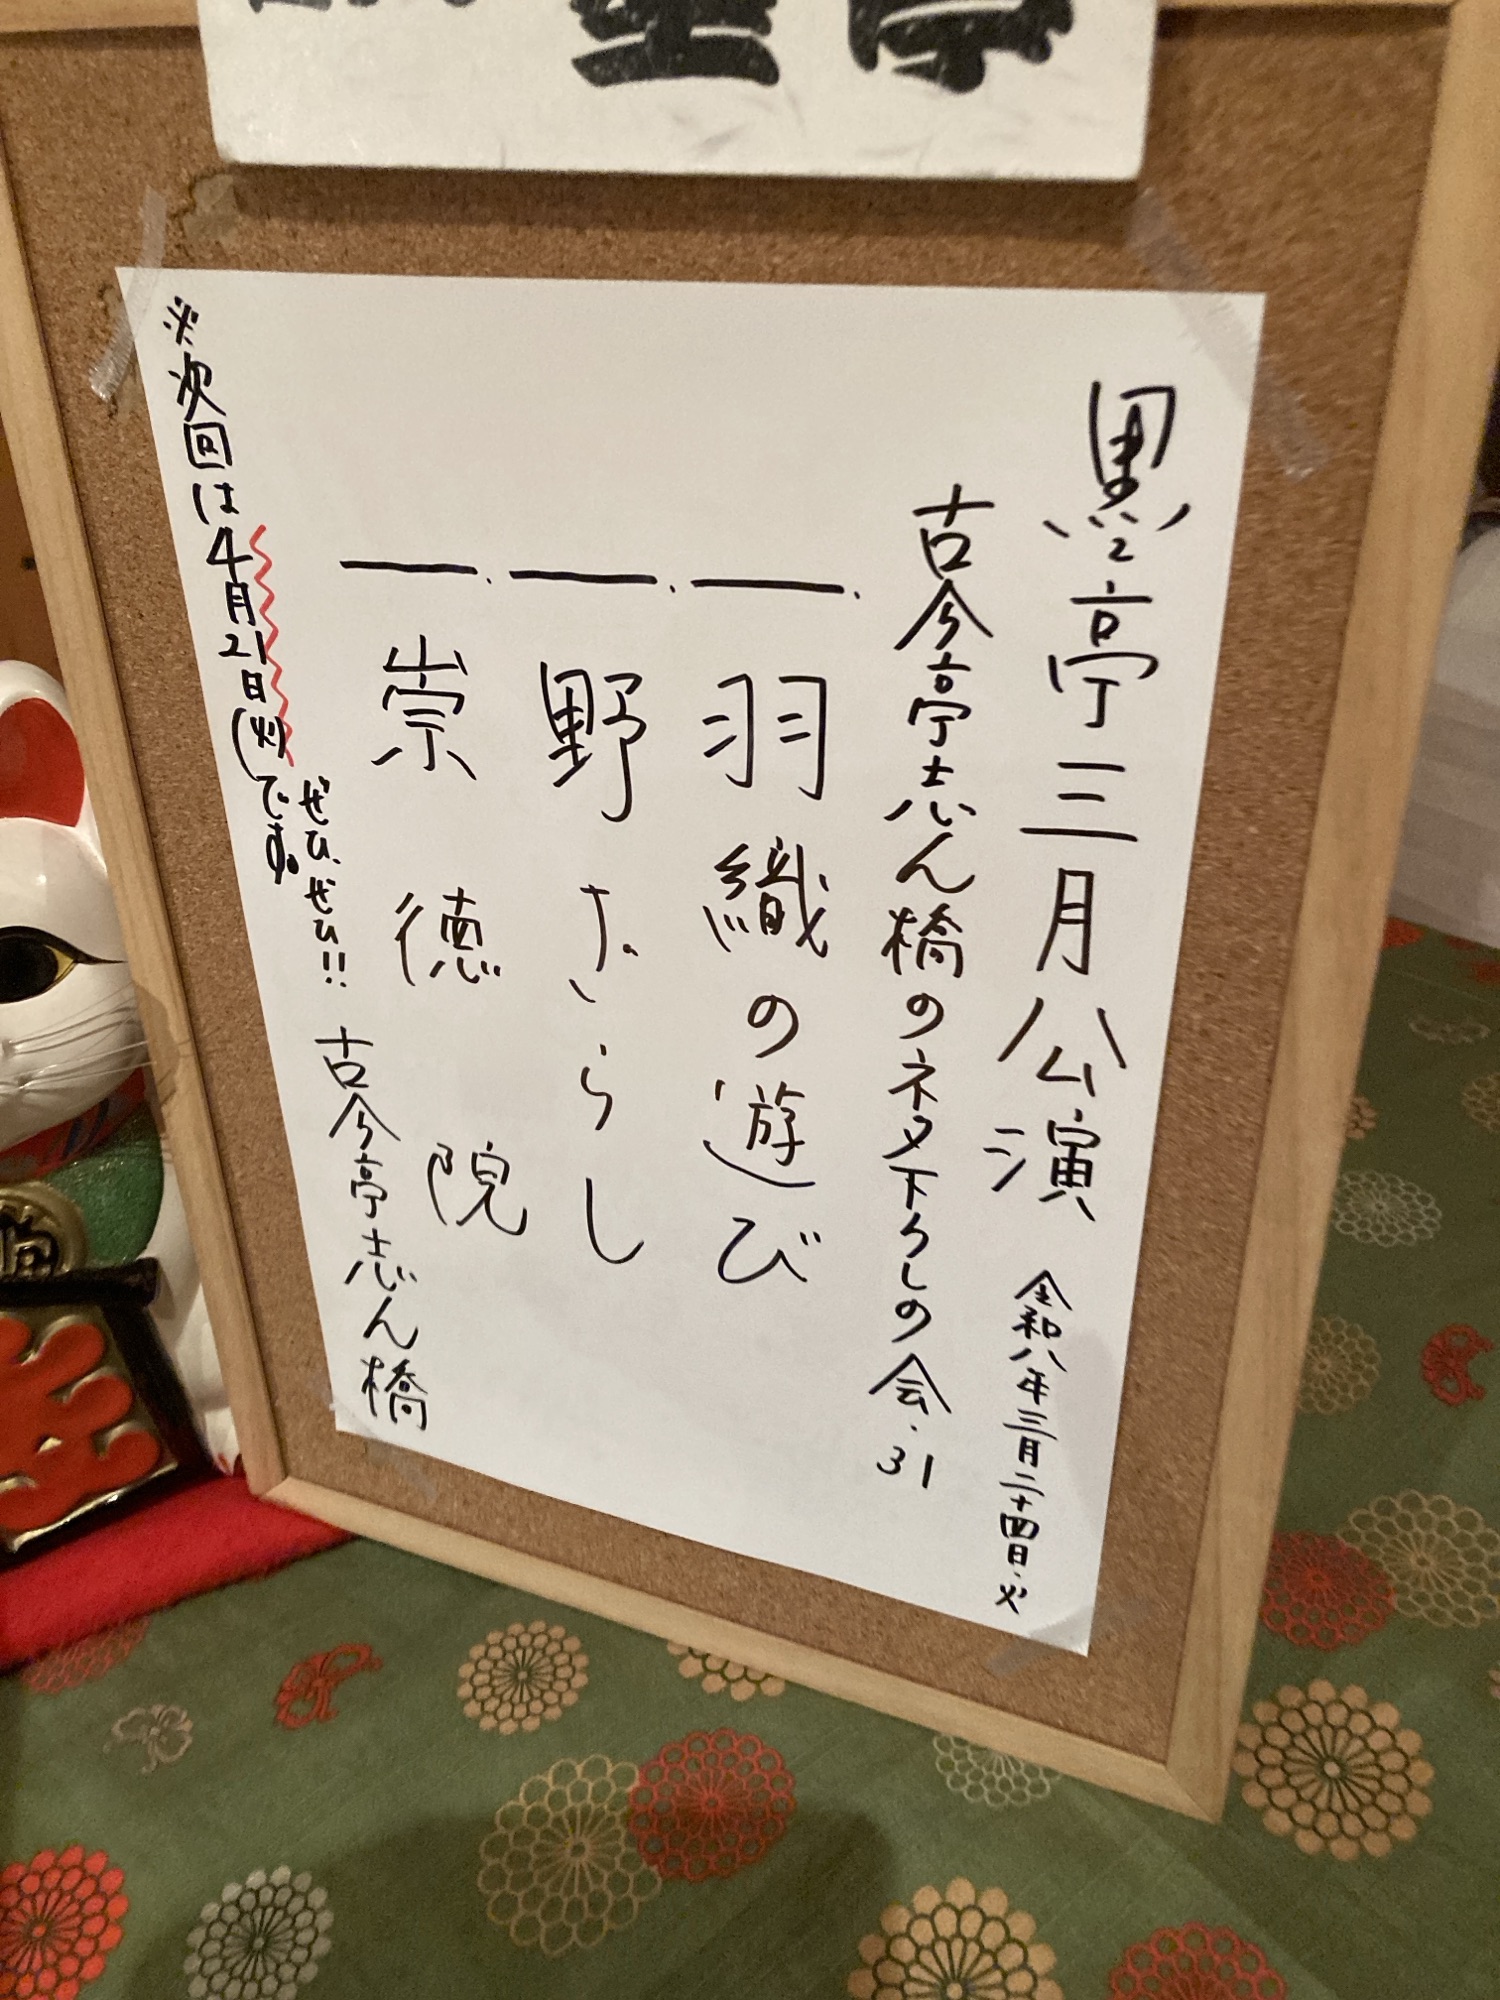 黒亭三月公演 令和八年三月二十四日・火
古今亭志ん橋のネタ下ろしの会・31
一. 羽織の遊び
一. 野ざらし
一. 崇徳院
※次回は4月21日(火)です。
ぜひ、ぜひ!! 古今亭志ん橋